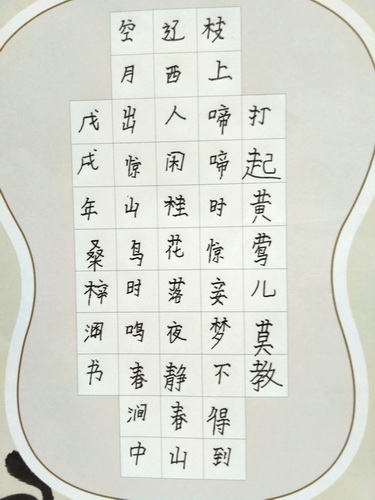 打起黄莺儿莫教
枝上啼啼时惊妾梦不得到
辽西人闲桂花落夜静春山
空月出惊山鸟时鸣春涧中
戊戌年桑梓渊书